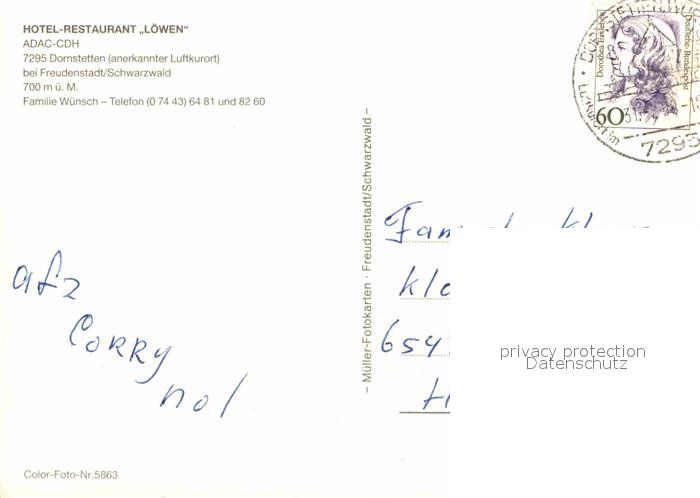 HOTEL-RESTAURANT „LÖWEN“
ADAC-CDH
7295 Dornstetten (anerkannter Luftkurort)
bei Freudenstadt/Schwarzwald
700 m ü. M.
Familie Wünsch – Telefon (0 74 43) 64 81 und 82 60
Dorothea Erxleben
Deutsche Bundespost
60
Luftkurort im
7295
– Müller-Fotokarten · Freudenstadt/Schwarzwald –
afz
CORRY
nol
Fam
klo
654
privacy protection
Datenschutz
Color-Foto-Nr.5863